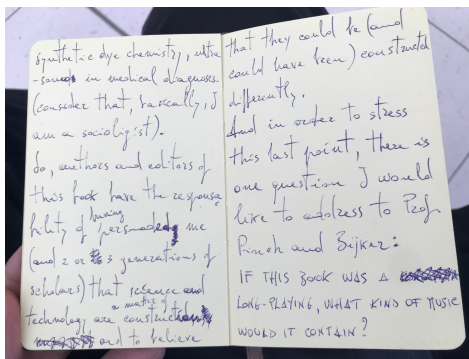 synthetic dye chemistry, ultra
-sounds in medical diagnoses.
(consider that, basically, I
am a sociologist).
So, authors and editors of
this book have the responsa
bility of having persuaded me
(and 2 or 3 generations of
scholars) that science and
technology are a matter of construction
and to believe
that they could be (and
could have been) constructed
differently.
And in order to stress
this last point, there is
one question I would
like to address to Prof
Pinch and Bijker:
IF THIS BOOK WAS A
LONG-PLAYING, WHAT KIND OF MUSIC
WOULD IT CONTAIN?